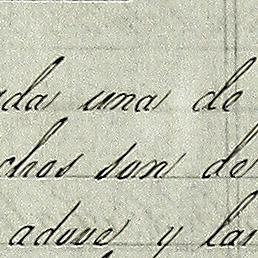 ada una de
chos son de
adove y lan